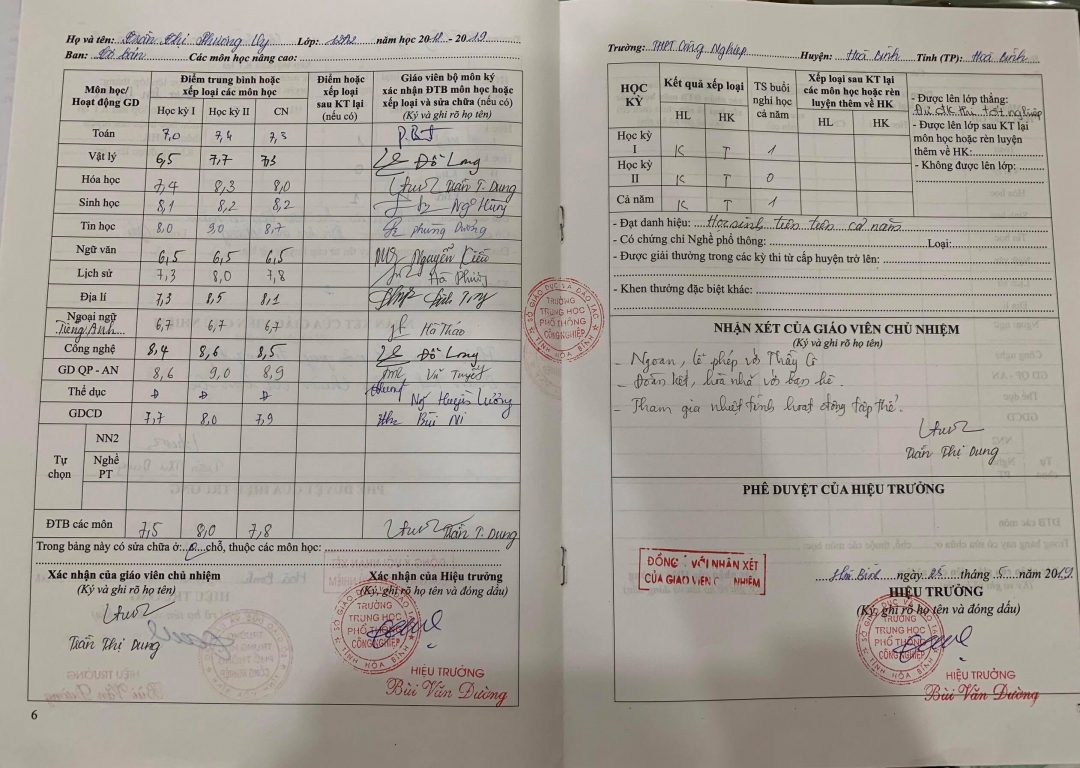 Họ và tên: Trần Thị Phương Vy Lớp: 12A2 năm học 2018 - 2019
Ban: Cơ bản Các môn học nâng cao:
Môn học/ Hoạt động GD
Điểm trung bình hoặc xếp loại các môn học
Học kỳ I Học kỳ II CN
Điểm hoặc xếp loại sau KT lại (nếu có)
Giáo viên bộ môn ký xác nhận ĐTB môn học hoặc xếp loại và sửa chữa (nếu có)
(Ký và ghi rõ họ tên)
Toán 7,0 7,4 7,3
Vật lý 6,5 7,7 7,3 Đỗ Long
Hóa học 7,4 8,3 8,0 Trần T. Dung
Sinh học 8,1 8,2 8,2 Ngô Hùng
Tin học 8,0 9,0 8,7 Phùng Dưỡng
Ngữ văn 6,5 6,5 6,5 Nguyễn Kiều
Lịch sử 7,3 8,0 7,8 Hà Phương
Địa lí 7,3 8,5 8,1
Ngoại ngữ
Tiếng Anh 6,7 6,7 6,7 Hà Thảo
Công nghệ 8,4 8,6 8,5 Đỗ Long
GD QP - AN 8,6 9,0 8,9 Vũ Tuyết
Thể dục Đ Đ Đ Ng Huyện Lưỡng
GDCD 7,7 8,0 7,9 Bùi Ni
Tự chọn
NN2
Nghề PT
ĐTB các môn 7,5 8,0 7,8 Trần T. Dung
Trong bảng này có sửa chữa ở: 0 chỗ, thuộc các môn học:
Xác nhận của giáo viên chủ nhiệm
(Ký và ghi rõ họ tên)
Trần Thị Dung
Xác nhận của Hiệu trưởng
(Ký, ghi rõ họ tên và đóng dấu)
SỞ GIÁO DỤC VÀ ĐÀO TẠO
TRƯỜNG
TRUNG HỌC
PHỔ THÔNG
CÔNG NGHIỆP
TỈNH HÒA BÌNH
HIỆU TRƯỞNG
Bùi Văn Dường
6
Trường: THPT Công Nghiệp Huyện: Hoà Bình Tỉnh (TP): Hoà Bình
HỌC KỲ
Kết quả xếp loại
HL HK
TS buổi nghỉ học cả năm
Xếp loại sau KT lại các môn học hoặc rèn luyện thêm về HK
HL HK
- Được lên lớp thẳng:
Đủ đk thi tốt nghiệp
- Được lên lớp sau KT lại môn học hoặc rèn luyện thêm về HK:
- Không được lên lớp:
Học kỳ I K T 1
Học kỳ II K T 0
Cả năm K T 1
- Đạt danh hiệu: Học sinh tiên tiến cả năm
- Có chứng chỉ Nghề phổ thông: Loại:
- Được giải thưởng trong các kỳ thi từ cấp huyện trở lên:
- Khen thưởng đặc biệt khác:
SỞ GIÁO DỤC VÀ ĐÀO TẠO
TRƯỜNG
TRUNG HỌC
PHỔ THÔNG
CÔNG NGHIỆP
TỈNH HÒA BÌNH
NHẬN XÉT CỦA GIÁO VIÊN CHỦ NHIỆM
(Ký và ghi rõ họ tên)
- Ngoan, lễ phép với Thầy Cô
- Đoàn kết, hòa nhã với bạn bè.
- Tham gia nhiệt tình hoạt động tập thể.
Trần Thị Dung
PHÊ DUYỆT CỦA HIỆU TRƯỞNG
ĐỒNG Ý VỚI NHẬN XÉT
CỦA GIÁO VIÊN CHỦ NHIỆM
Hoà Bình ngày 25 tháng 5 năm 2019
HIỆU TRƯỞNG
(Ký, ghi rõ họ tên và đóng dấu)
TRƯỜNG
TRUNG HỌC
PHỔ THÔNG
CÔNG NGHIỆP
TỈNH HÒA BÌNH
HIỆU TRƯỞNG
Bùi Văn Dường